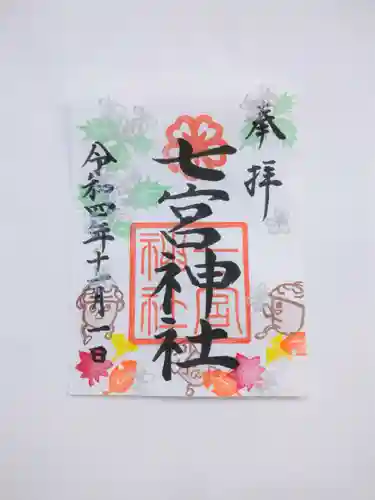 奉拝
七宮神社
七宮
神社
令和四年十一月一日